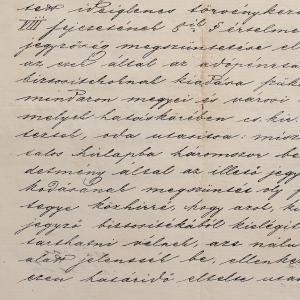 tett ideiglenes törvénykez
VIII fejezetének 5ik § értelme
jegyzőség megszüntetése el
az ezek által az adópénzta
biztositékoknak kiadása
mindazon megyei és városi
melyek hatáskörében cs. kir.
tezset, oda utasitsa: misz
talos hirlapba háromszor be
detmény által az illető jegy
kodásának megszüntét oly
tegye közhirré, hogy azok, k
jegyző biztositékából kielégit
tarthatni vélnek, azt nála
alatt jelentsék be, ellenke
ezen határidő eltelte utá